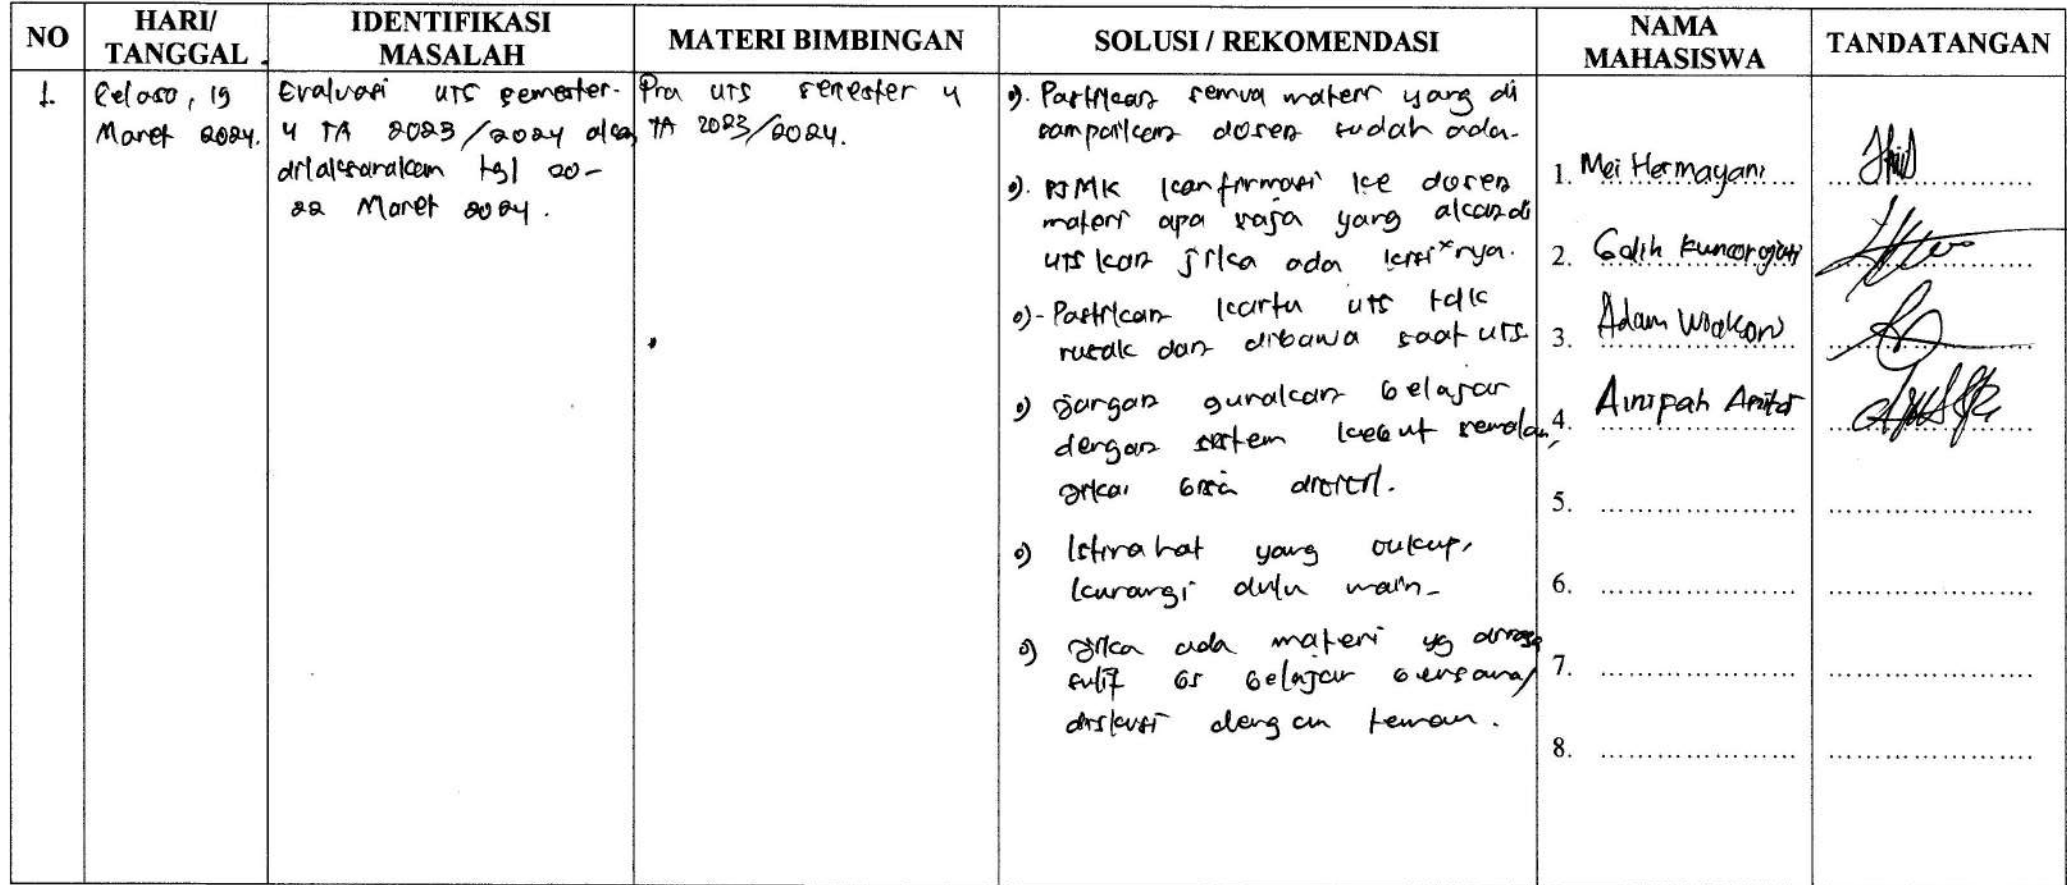 NO
HARI/
TANGGAL
IDENTIFIKASI
MASALAH
MATERI BIMBINGAN
SOLUSI / REKOMENDASI
NAMA
MAHASISWA
TANDATANGAN
1.
Selasa, 19
Maret 2024.
Evaluasi UTS semester
4 TA 2023/2024 akan
dilaksanakan tgl 20-
22 Maret 2024.
Pra UTS semester 4
TA 2023/2024.
Pastikan semua materi yang di
sampaikan dosen sudah ada.
PJMK konfirmasi ke dosen
materi apa saja yang akan di
UTS kan jika ada kisi"nya.
Pastikan kartu UTS tdk
rusak dan dibawa saat UTS
Jangan gunakan belajar
dengan sistem kebut semalam,
jika bisa dicicil.
Istirahat yang cukup,
kurangi dulu main-
Jika ada materi yg dirasa
sulit bs belajar bersama/
diskusi dengan teman.
1. Mei Hermayani
2. Galih
3. Adam
4. Anita
5.
6.
7.
8.